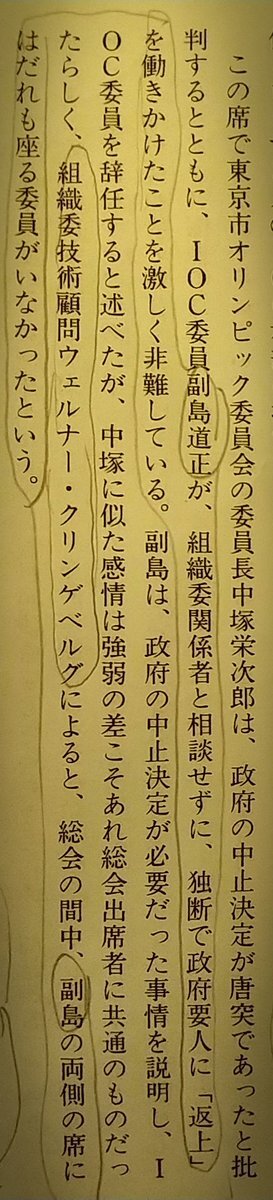 この席で東京市オリンピック委員会の委員長中塚栄次郎は、政府の中止決定が唐突であったと批
判するとともに、IOC委員副島道正が、組織委関係者と相談せずに、独断で政府要人に「返上」
を働きかけたことを激しく非難している。副島は、政府の中止決定が必要だった事情を説明し、I
OC委員を辞任すると述べたが、中塚に似た感情は強弱の差こそあれ総会出席者に共通のものだっ
たらしく、組織委技術顧問ウェルナー・クリンゲベルグによると、総会の間中、副島の両側の席に
はだれも座る委員がいなかったという。